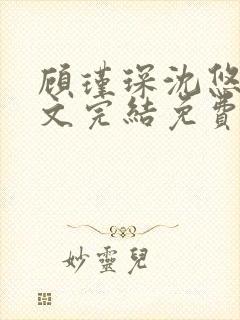 顧瑾琛沈悠
文完結免費
妙靈兒